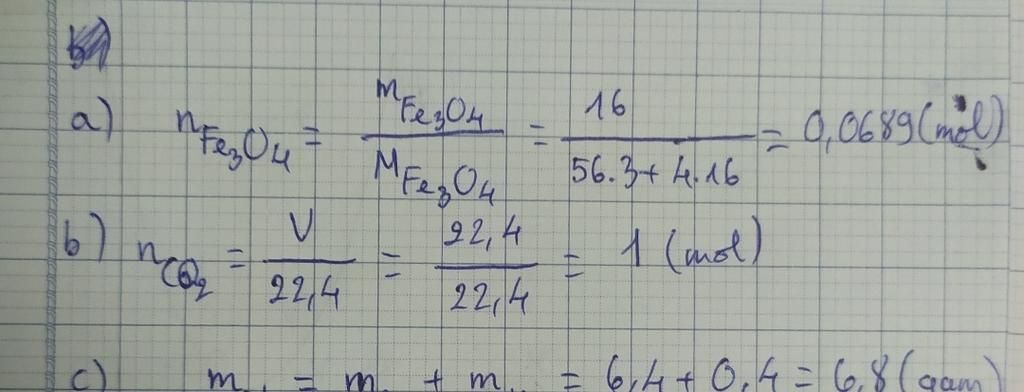 a) n Fe₃O₄ = m Fe₃O₄ / M Fe₃O₄ = 16 / 56.3 + 4.16 = 0,0689 (mol)
b) n CO₂ = V / 22,4 = 22,4 / 22,4 = 1 (mol)
c) m = m + m = 6,4 + 0,4 = 6,8 (gam)